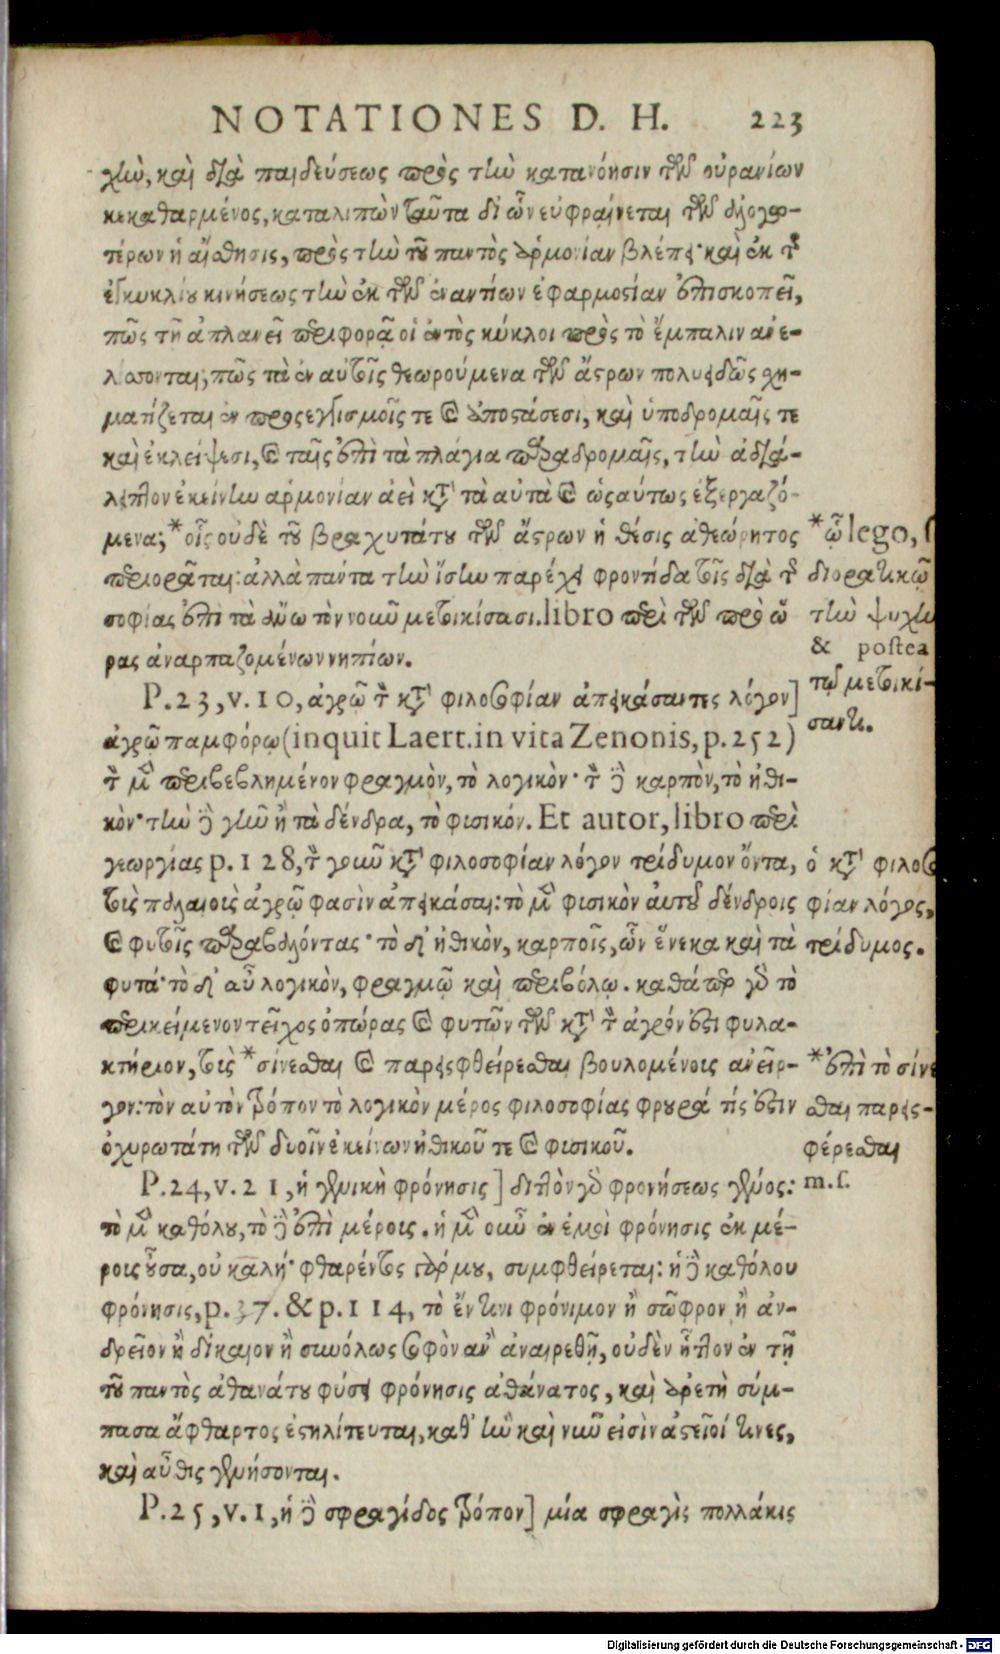 NOTATIONES D. H. 223
χὴν, καὶ διὰ παιδεύσεως πρὸς τὴν κατανόησιν τῶν οὐρανίων
κεκαθαρμένος, καταλιπὼν ταῦτα δι ὧν εὐφραίνεται τῶν ἀλογω-
τέρων ἡ αἴσθησις, πρὸς τὴν τοῦ παντὸς ἁρμονίαν βλέπει· καὶ ἐκ τῆς
ἐγκυκλίου κινήσεως τὴν ἐκ τῶν ἐναντίων ἐφαρμοστίαν ἐπισκοπεῖ,
πῶς τῇ ἀπλανεῖ περιφορᾷ οἱ ἐντὸς κύκλοι πρὸς τὸ ἔμπαλιν ἀνε-
λίσσονται, πῶς τὰ ἐν αὐτοῖς θεωρούμενα τῶν ἄστρων πολυειδῶς σχη-
ματίζεται ἐν προςεγγισμοῖς τε καὶ ἀποστάσεσι, καὶ ὑποδρομαῖς τε
καὶ ἐκλείψεσι, καὶ ταῖς ἐπὶ τὰ πλάγια παραδρομαῖς, τὴν ἀδιά-
λειπτον ἐκείνην ἁρμονίαν ἀεὶ κατὰ τὰ αὐτὰ καὶ ὡςαύτως ἐξεργαζό-
μενα; * οἷς οὐδὲ τοῦ βραχυτάτου τῶν ἄστρων ἡ θέσις ἀθεώρητος
περιορᾶται: ἀλλὰ πάντα τὴν ἴσην παρέχει φροντίδα τοῖς διὰ τῆς
σοφίας ἐπὶ τὰ ἄνω τὸν νοῦν μετοικίσασι. libro περὶ τῶν πρὸ ὥ
ρας ἀναρπαζομένων νηπίων.
* ᾧ lego,
διορατικῷ
τὴν ψυχὴν
& postea
τῷ μετοικί-
σαντι.
P. 23, v. 10, ἀγρῷ τὸν κατὰ φιλοσοφίαν ἀπεικάσαντες λόγον]
ἀγρῷ παμφόρῳ (inquit Laert. in vita Zenonis, p. 252)
τὸν μὲν περιβεβλημένον φραγμὸν, τὸ λογικὸν· τὸν δὲ καρπὸν, τὸ ἠθι-
κὸν· τὴν δὲ γῆν ἢ τὰ δένδρα, τὸ φυσικόν. Et autor, libro περὶ
γεωργίας p. 128, τὸν γοῦν κατὰ φιλοσοφίαν λόγον τρίδυμον ὄντα,
τοὺς παλαιοὺς ἀγρῷ φασὶν ἀπεικάσαι: τὸ μὲν φυσικὸν αὐτοῦ δένδροις
καὶ φυτοῖς παραβαλόντας· τὸ δ' ἠθικὸν, καρποῖς, ὧν ἕνεκα καὶ τὰ
φυτά· τὸ δ' αὖ λογικὸν, φραγμῷ καὶ περιβόλῳ. καθάπερ γὰρ τὸ
περικείμενον τεῖχος ὀπώρας καὶ φυτῶν τῶν κατὰ τὸν ἀγρόν ἐστι φυλα-
κτήριον, τοὺς * σίνεσθαι καὶ παρειςφθείρεσθαι βουλομένοις ἀνεῖρ-
γον: τὸν αὐτὸν τρόπον τὸ λογικὸν μέρος φιλοσοφίας φρουρά τίς ἐστιν
ὀχυρωτάτη τῶν δυοῖν ἐκείνων ἠθικοῦ τε καὶ φυσικοῦ.
ὁ κατὰ φιλοσο
φίαν λόγος,
τρίδυμος.
* ἐπὶ τὸ σίνε
σθαι παρεις-
φέρεσθαι
m. s.
P. 24, v. 21, ἡ γενικὴ φρόνησις] διττὸν γὰρ φρονήσεως γένος:
τὸ μὲν καθόλου, τὸ δὲ ἐπὶ μέροις. ἡ μὲν οὖν ἐν ἐμοὶ φρόνησις ἐκ μέ-
ροις οὖσα, οὐ καλή· φθαρέντος γάρ μου, συμφθείρεται: ἡ δὲ καθόλου
φρόνησις, p. 37. & p. 114, τὸ ἔν τινι φρόνιμον ἢ σῶφρον ἢ ἀν-
δρεῖον ἢ δίκαιον ἢ συνόλως σοφὸν ἂν ἀναιρεθῇ, οὐδὲν ἧττον ἐν τῇ
τοῦ παντὸς ἀθανάτου φύσει φρόνησις ἀθάνατος, καὶ ἀρετὴ σύμ-
πασα ἄφθαρτος ἐστηλίτευται, καθ' ἣν καὶ νῦν εἰσὶν ἀστεῖοί τινες,
καὶ αὖθις γενήσονται.
P. 25, v. 1, ἡ δὲ σφραγίδος τρόπον] μία σφραγὶς πολλάκις
Digitalisierung gefördert durch die Deutsche Forschungsgemeinschaft - DFG